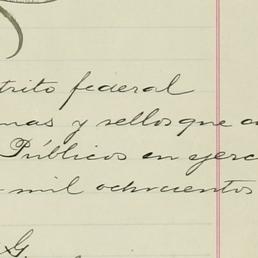 trito federal
mas y sellos que a
Públicos en ejerc
mil ochocientos
G.